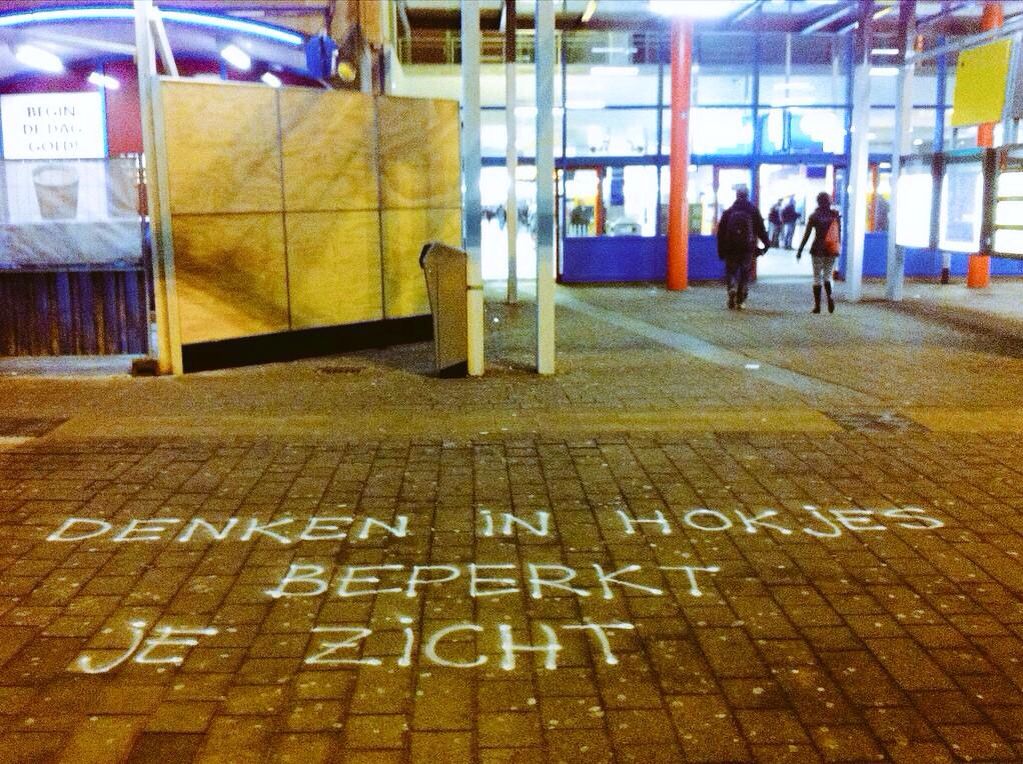 BEGIN
DE DAG
GOED!
DENKEN iN HOKjES
BEPERKT
jE ZiCHT